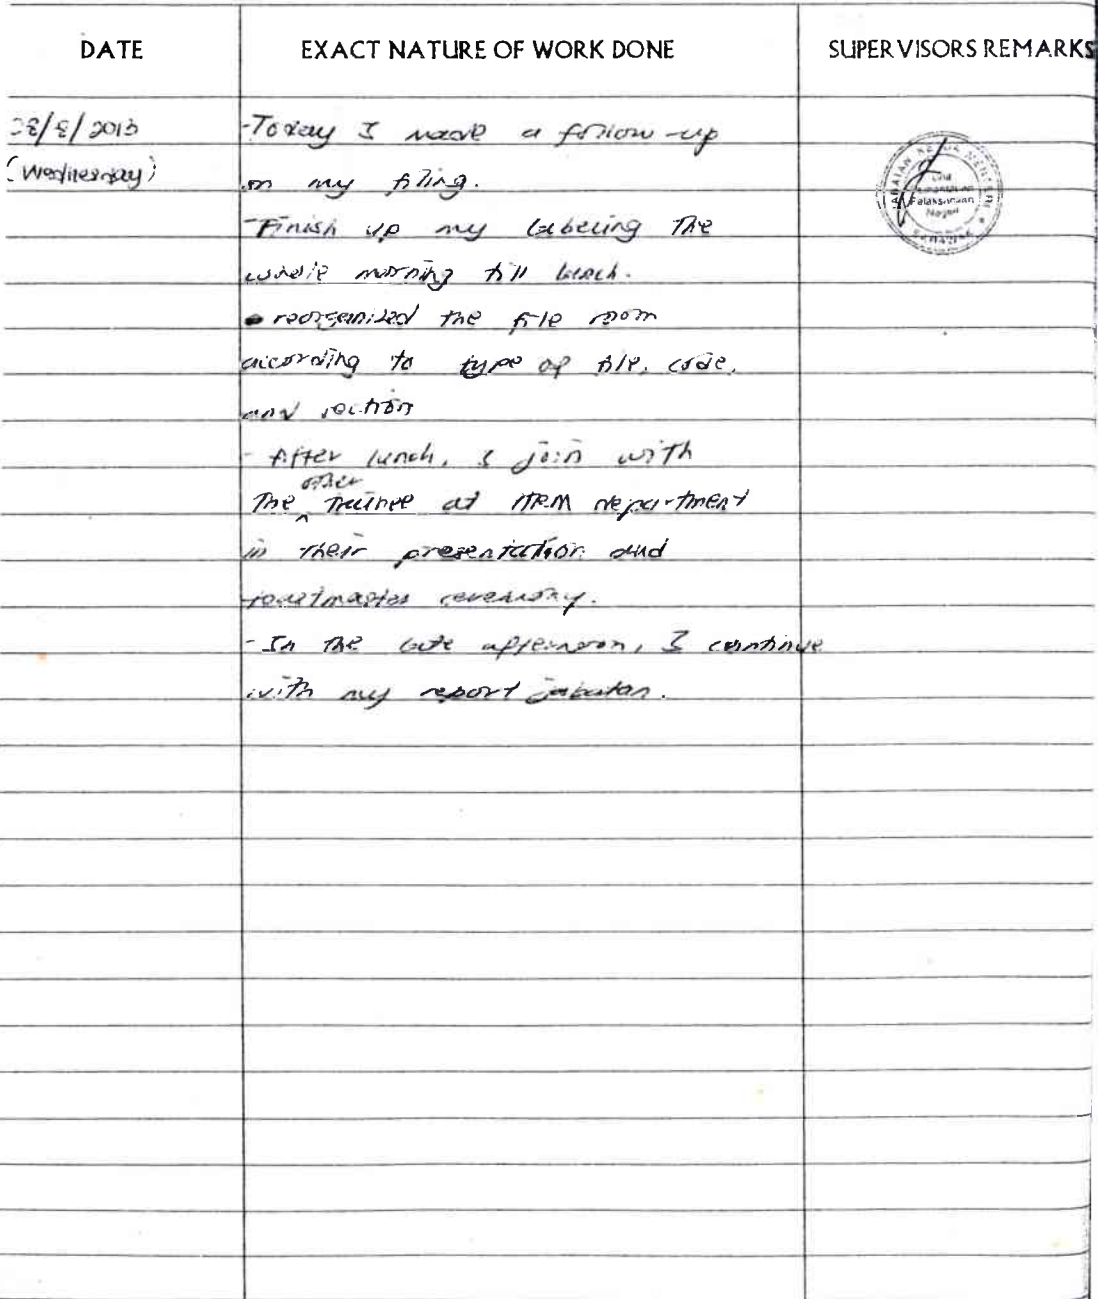 DATE EXACT NATURE OF WORK DONE SUPERVISORS REMARKS
28/8/2013 -Today I made a follow-up
(Wednesday) on my filing.
-Finish up my labeling the
whole morning till lunch.
- reorganized the file room
according to type of file, code,
and section
- After lunch, I join with
other
the ^ trainee at HRM department
in their presentation and
toastmaster ceremony.
-In the late afternoon, I continue
with my report jabatan.
JABATAN KETUA MENTERI
Unit
Pelaksanaan
Negeri